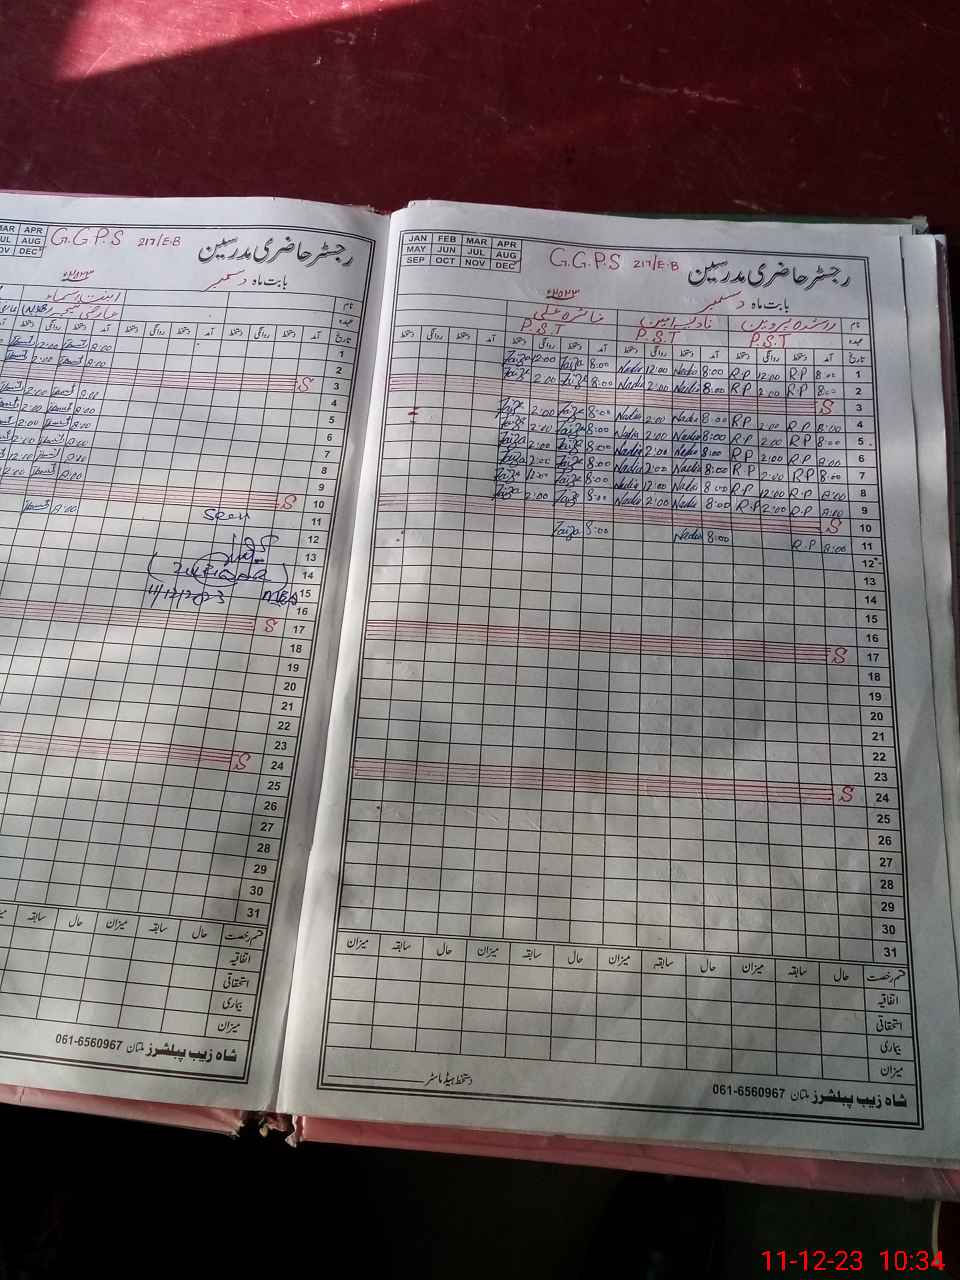 MAR APR
JUL AUG
NOV DEC
G.G.P.S 217/E.B
رجسٹر حاضری مدرسین
بابت ماہ دسمبر
۲۰۲۳ء
نام
عہدہ
تاریخ آمد دستخط روانگی دستخط آمد دستخط روانگی دستخط
1
2
3 S
4
5
6
7
8
9
10 S
11 8:00
Seen
12
13
14
11/12/2023
15
16
17 S
18
19
20
21
22
23
24 S
25
26
27
28
29
30
31
قسم رخصت حال سابقہ میزان حال سابقہ
اتفاقیہ
استحقاقی
بیماری
میزان
شاہ زیب پبلشرز ملتان 061-6560967
JAN FEB MAR APR
MAY JUN JUL AUG
SEP OCT NOV DEC
G.G.P.S 217/E.B
رجسٹر حاضری مدرسین
بابت ماہ دسمبر
۲۰۲۳ء
نام راشدہ پروین نادیہ امین فائزہ علی
عہدہ P.S.T P.S.T P.S.T
تاریخ آمد دستخط روانگی دستخط آمد دستخط روانگی دستخط آمد دستخط روانگی دستخط آمد دستخط روانگی دستخط
1 8:00 R.P 12:00 R.P 8:00 Nadia 12:00 Nadia 8:00 Faiza 12:00 Faiza
2 8:00 R.P 2:00 R.P 8:00 Nadia 2:00 Nadia 8:00 Faiza 2:00 Faiza
3 S
4 8:00 R.P 2:00 R.P 8:00 Nadia 2:00 Nadia 8:00 Faiza 2:00 Faiza
5 8:00 R.P 2:00 R.P 8:00 Nadia 2:00 Nadia 8:00 Faiza 2:00 Faiza
6 8:00 R.P 2:00 R.P 8:00 Nadia 2:00 Nadia 8:00 Faiza 2:00 Faiza
7 8:00 R.P 2:00 R.P 8:00 Nadia 2:00 Nadia 8:00 Faiza 2:00 Faiza
8 8:00 R.P 12:00 R.P 8:00 Nadia 12:00 Nadia 8:00 Faiza 12:00 Faiza
9 8:00 R.P 2:00 R.P 8:00 Nadia 2:00 Nadia 8:00 Faiza 2:00 Faiza
10 S
11 8:00 R.P 8:00 Nadia 8:00 Faiza
12
13
14
15
16
17 S
18
19
20
21
22
23
24 S
25
26
27
28
29
30
31
قسم رخصت حال سابقہ میزان حال سابقہ میزان حال سابقہ میزان حال سابقہ میزان
اتفاقیہ
استحقاقی
بیماری
میزان
دستخط ہیڈ ماسٹر
شاہ زیب پبلشرز ملتان 061-6560967
11-12-23 10:34